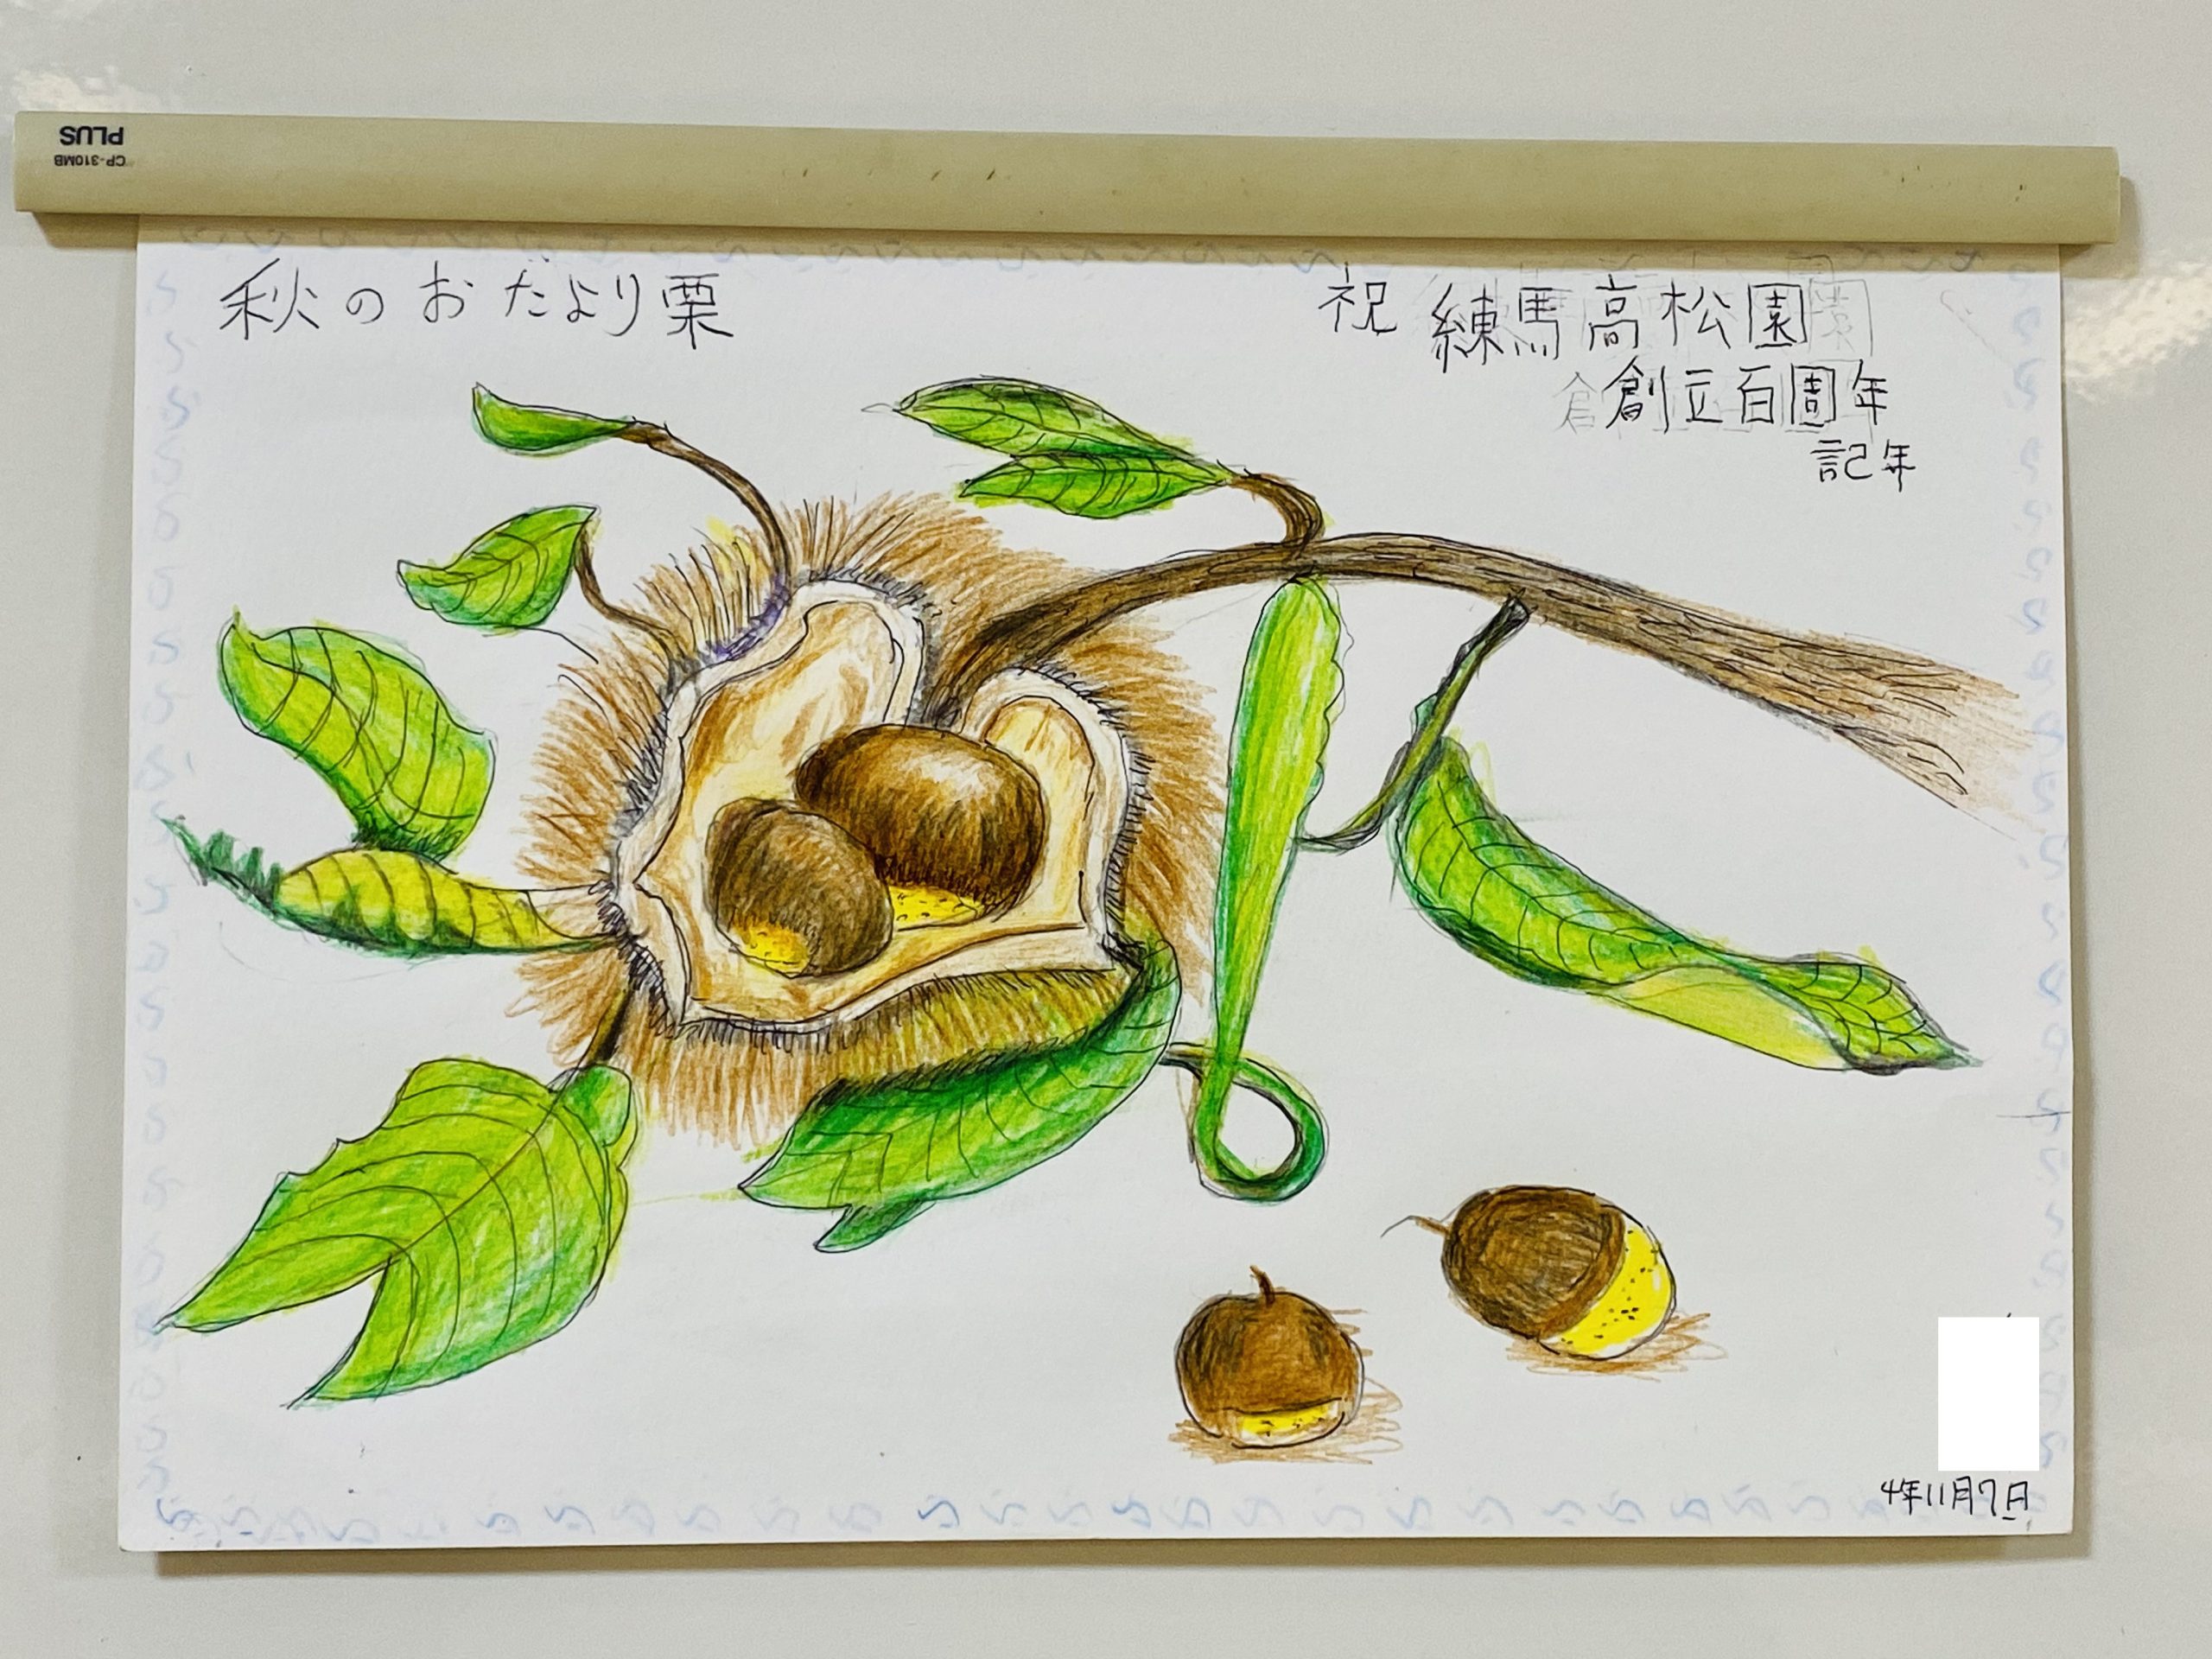 PLUS
CP-310MB
秋のおたより栗
祝 練馬高松園
創立百周年
記年
4年11月7日